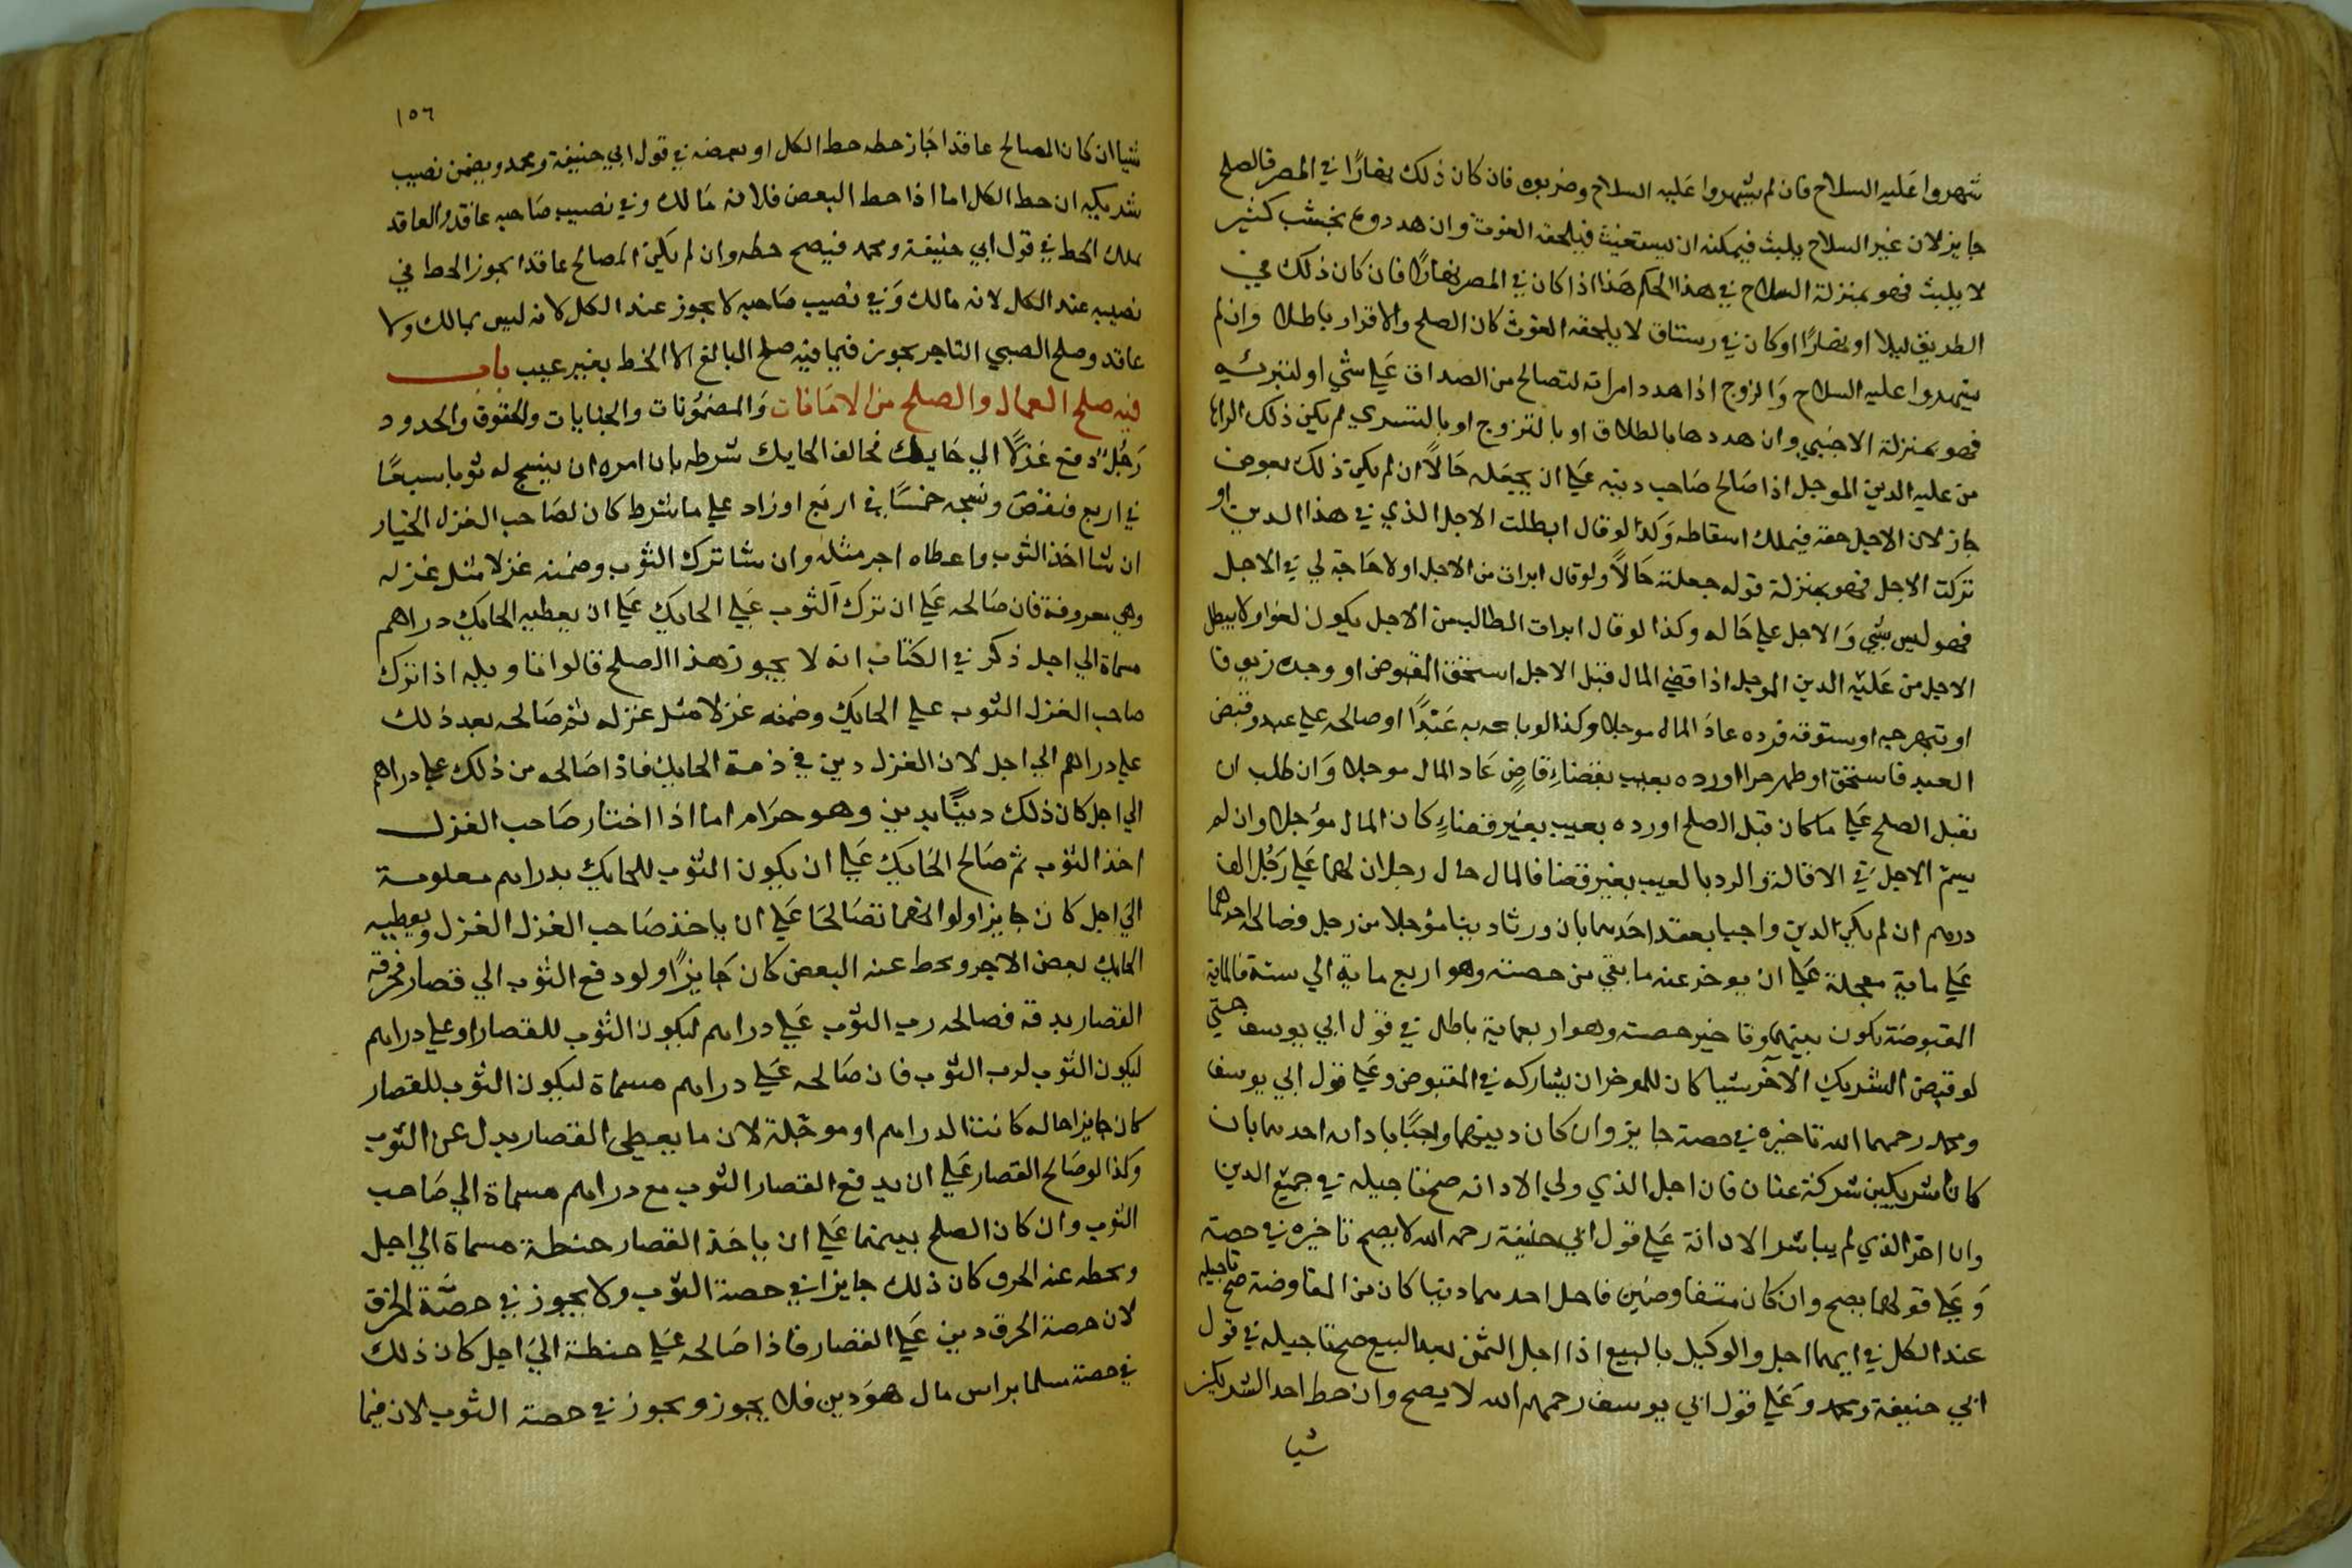 شهروا عليه السلاح فان لم يشهروا عليه السلاح وضربوه فان كان ذلك نهارًا في المصر فالصلح
جايز لان غير السلاح يلبث فيمكنه ان يستغيث فيلحقه الغوث وان هددوه بخشب كبير
لا يلبث فهو بمنزلة السلاح في هذا الحكم هذا اذا كان في المصر نهارًا فان كان ذلك في
الطريق ليلا او نهارًا او كان في رستاق لا يلحقه الغوث كان الصلح والاقرار باطلا وان لم
يشهروا عليه السلاح والزوج اذا هدد امراته لتصالح من الصداق علي شي او لتبرئه
فهو بمنزلة الاجنبي وان هددها بالطلاق او بالتزوج او بالتسري لم يكن ذلك اكراها
من عليه الدين الموجل اذا صالح صاحب دينه علي ان يجعله حالًا ان لم يكن ذلك بعوض
جاز لان الاجل حقه فيملك اسقاطه وكذا لو قال ابطلت الاجل الذي في هذا الدين او
تركت الاجل فهو بمنزلة قوله جعلته حالًا ولو قال ابرات من الاجل او لا حاجة لي في الاجل
فهو ليس بشي والاجل علي حاله وكذا لو قال ابرات الطالب من الاجل يكون لغوا ولا يبطل
الاجل من عليه الدين الموجل اذا قضي المال قبل الاجل استحق المقبوض او وجده زيوفا
او نبهرجه او ستوقة فرده عاد المال موجلا وكذا لو باعه به عبدًا او صالحه علي عبد وقبض
العبد فاستحق او ظهر حرا او رده بعيب بقضاءِ قاضٍ عاد المال موجلا وان طلب ان
يقبل الصلح علي ما كان قبل الصلح او رده بعيب بغير قضاءٍ كان المال مؤجلا وان لم
يسم الاجل في الاقالة والرد بالعيب بغير قضا فالمال حال رجلان لهما علي رجل الف
درهم ان لم يكن الدين واجبا بعقد احدهما بان ورثا دينا مؤجلا من رجل فصالح احدهما
علي ماية معجلة علي ان يوخر عنه ما بقي من حصته وهو اربع ماية الي سنة فالماية
المقبوضة تكون بينهما وتاخير حصته وهو اربعماية باطل في قول ابي يوسف حتي
لو قبض الشريك الآخر شيا كان للموخر ان يشاركه في المقبوض وعلي قول ابي يوسف
ومحمد رحمهما الله تاخيره في حصته جايز وان كان دينهما واجبًا بادانه احدهما بان
كانا شريكين شركة عنان فان اجل الذي ولي الادانه صح تاجيله في جميع الدين
وان اخر الذي لم يباشر الادانة علي قول ابي حنيفة رحمه الله لا يصح تاخيره في حصته
وعلي قولهما يصح وان كان متفاوضين فاجل احدهما دينا كان من المفاوضة صح تاجيله
عند الكل في ايهما اجل والوكيل بالبيع اذا اجل الثمن بعد البيع صح تاجيله في قول
ابي حنيفة ومحمد وعلي قول ابي يوسف رحمهم الله لا يصح وان حط احد الشريكين
شيا
١٥٦
شيا ان كان المصالح عاقدا جاز حطه حط الكل او بعضه في قول ابي حنيفة ومحمد ويضمن نصيب
شريكه ان حط الكل اما اذا حط البعض فلانه مالك وفي نصيب صاحبه عاقد والعاقد
يملك الحط في قول ابي حنيفة ومحمد فيصح حطه وان لم يكن المصالح عاقدا يجوز الحط في
نصيبه عند الكل لانه مالك وفي نصيب صاحبه لا يجوز عند الكل لانه ليس بمالك ولا
عاقد وصلح الصبي التاجر يجوز فيما فيه صلح البالغ الا الحط بغير عيب باب
فيه صلح العمال والصلح من الامانات والمضمونات والجنايات والحقوق والحدود
رجلٌ دفع غزلًا الي حايك فخالف الحايك شرطه بان امره ان ينسج له ثوبا سبعًا
في اربع فنقص ونسجه خمسًا في اربع او زاد علي ما شرط كان لصاحب الغزل الخيار
ان شا اخذ الثوب واعطاه اجر مثله وان شا ترك الثوب وضمنه غزلا مثل غزله
وهي معروفة فان صالحه علي ان ترك الثوب علي الحايك علي ان يعطيه الحايك دراهم
مسماة الي اجل ذكر في الكتاب انه لا يجوز هذا الصلح قالوا تاويله اذا ترك
صاحب الغزل الثوب علي الحايك وضمنه غزلا مثل غزله ثم صالحه بعد ذلك
علي دراهم الي اجل لان الغزل دين في ذمة الحايك فاذا صالحه من ذلك علي دراهم
الي اجل كان ذلك دينًا بدين وهو حرام اما اذا اختار صاحب الغزل
اخذ الثوب ثم صالح الحايك علي ان يكون الثوب للحايك بدراهم معلومة
الي اجل كان جايزا ولو انهما تصالحا علي ان ياخذ صاحب الغزل الغزل ويعطيه
الحايك بعض الاجر ويحط عنه البعض كان جايزًا ولو دفع الثوب الي قصار فخرقه
القصار بدقه فصالحه رب الثوب علي دراهم ليكون الثوب للقصار او علي دراهم
ليكون الثوب لرب الثوب فان صالحه علي دراهم مسماة ليكون الثوب للقصار
كان جايزا حاله كانت الدراهم او موجلة لان ما يعطي القصار بدل عن الثوب
وكذا لو صالح القصار علي ان يدفع القصار الثوب مع دراهم مسماة الي صاحب
الثوب وان كان الصلح بينهما علي ان ياخذ القصار حنطة مسماة الي اجل
ويحطه عنه الخرق كان ذلك جايزا في حصة الثوب ولا يجوز في حصة الخرق
لان حصة الخرق دين علي القصار فاذا صالحه علي حنطة الي اجل كان ذلك
في حصته سلما براس مال هو دين فلا يجوز ويجوز في حصة الثوب لان فيما